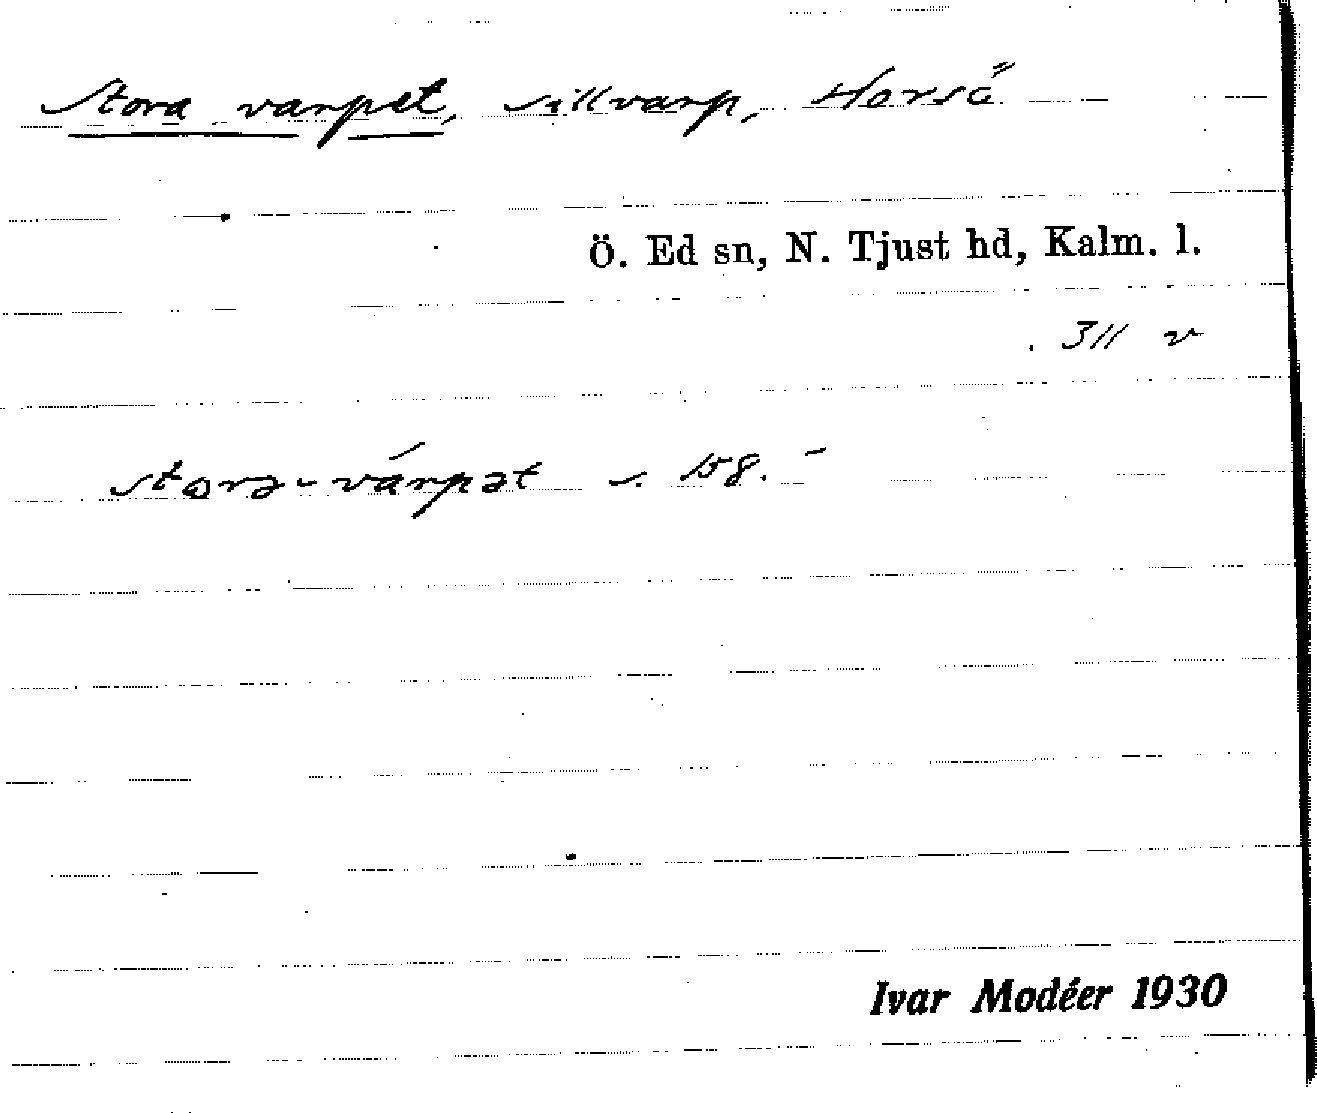 Stora varpet, sillvarp, Horsö
Ö. Ed sn, N. Tjust hd, Kalm. l.
311 v
storə-várpət s. 158.
Ivar Modéer 1930